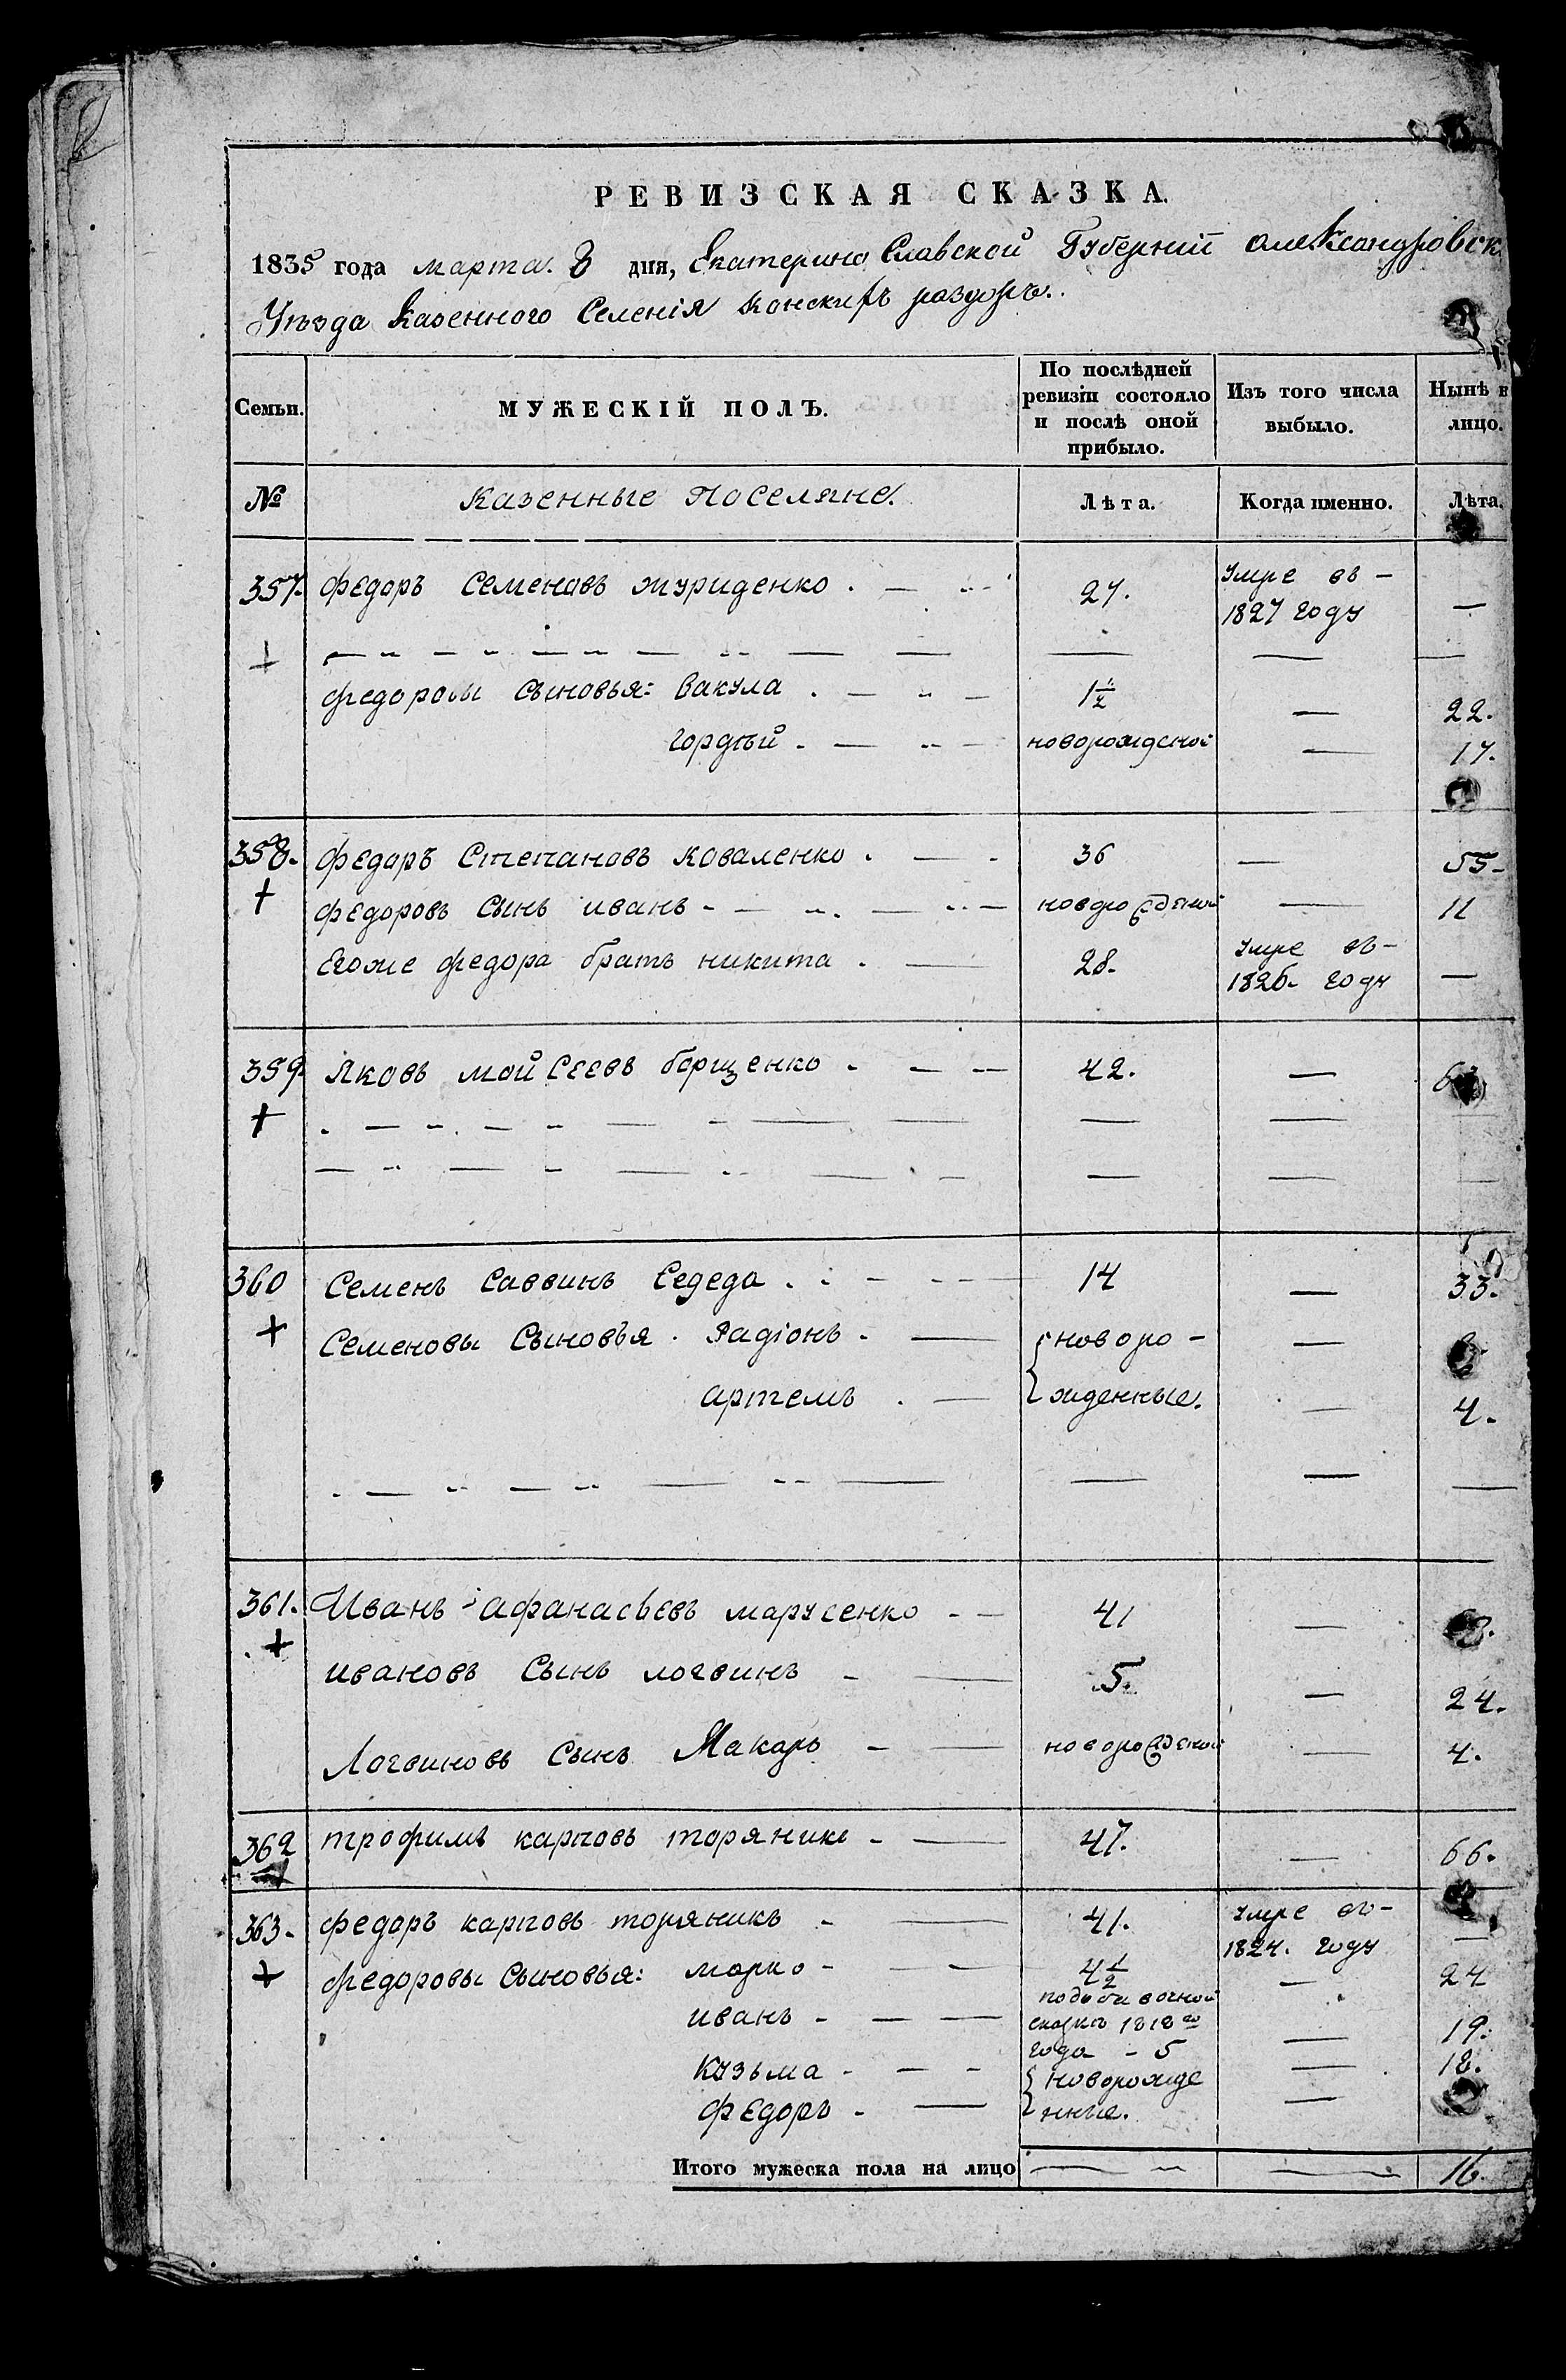 РЕВИЗСКАЯ СКАЗКА.
1835 года марта. 8 дня, Екатерино Славской Губерніи александровск
Уѣзда казенного Селенія конскихъ раздоръ.
Семьи. МУЖЕСКІЙ ПОЛЪ. По послѣдней ревизіи состояло и послѣ оной прибыло. Изъ того числа выбыло. Нынѣ н лицо.
№ казенные поселяне. Лѣта. Когда именно. Лѣта.
357. федоръ семеновъ журиденко. 27. умре въ — —
1827 году
+ — — —
федоровы сыновья: вакула. 1 1/2 — 22.
гордѣй. новорожденой — 17.
358. федоръ степановъ коваленко. 36 — 55
+ федоровъ сынъ иванъ новорожденой — 11
егоже федора братъ никита. 28. умре въ — —
1826. году
359. яковъ мойсеевъ борщенко. 42. —
+ — —
— —
360 семенъ саввинъ Седеда. 14 — 33.
+ семеновы сыновья. Радіонъ. новоро- —
артемъ. жденные. — 4.
— — —
361. Иванъ афанасьевъ марусенко 41 —
+ ивановъ сынъ логвинъ 5. — 24.
Логвиновъ сынъ Макаръ новорожденой — 4.
362 трофимъ карповъ торяникъ 47. — 66.
363. федоръ карповъ торяникъ 41. умре въ — —
1824. году
+ федоровы сыновья: марко 4 1/2 — 24
иванъ
сказкѣ 1818го — 19.
года - 5
кузьма новорожде — 18.
федоръ. нные. —
Итого мужеска пола на лицо — — 16.